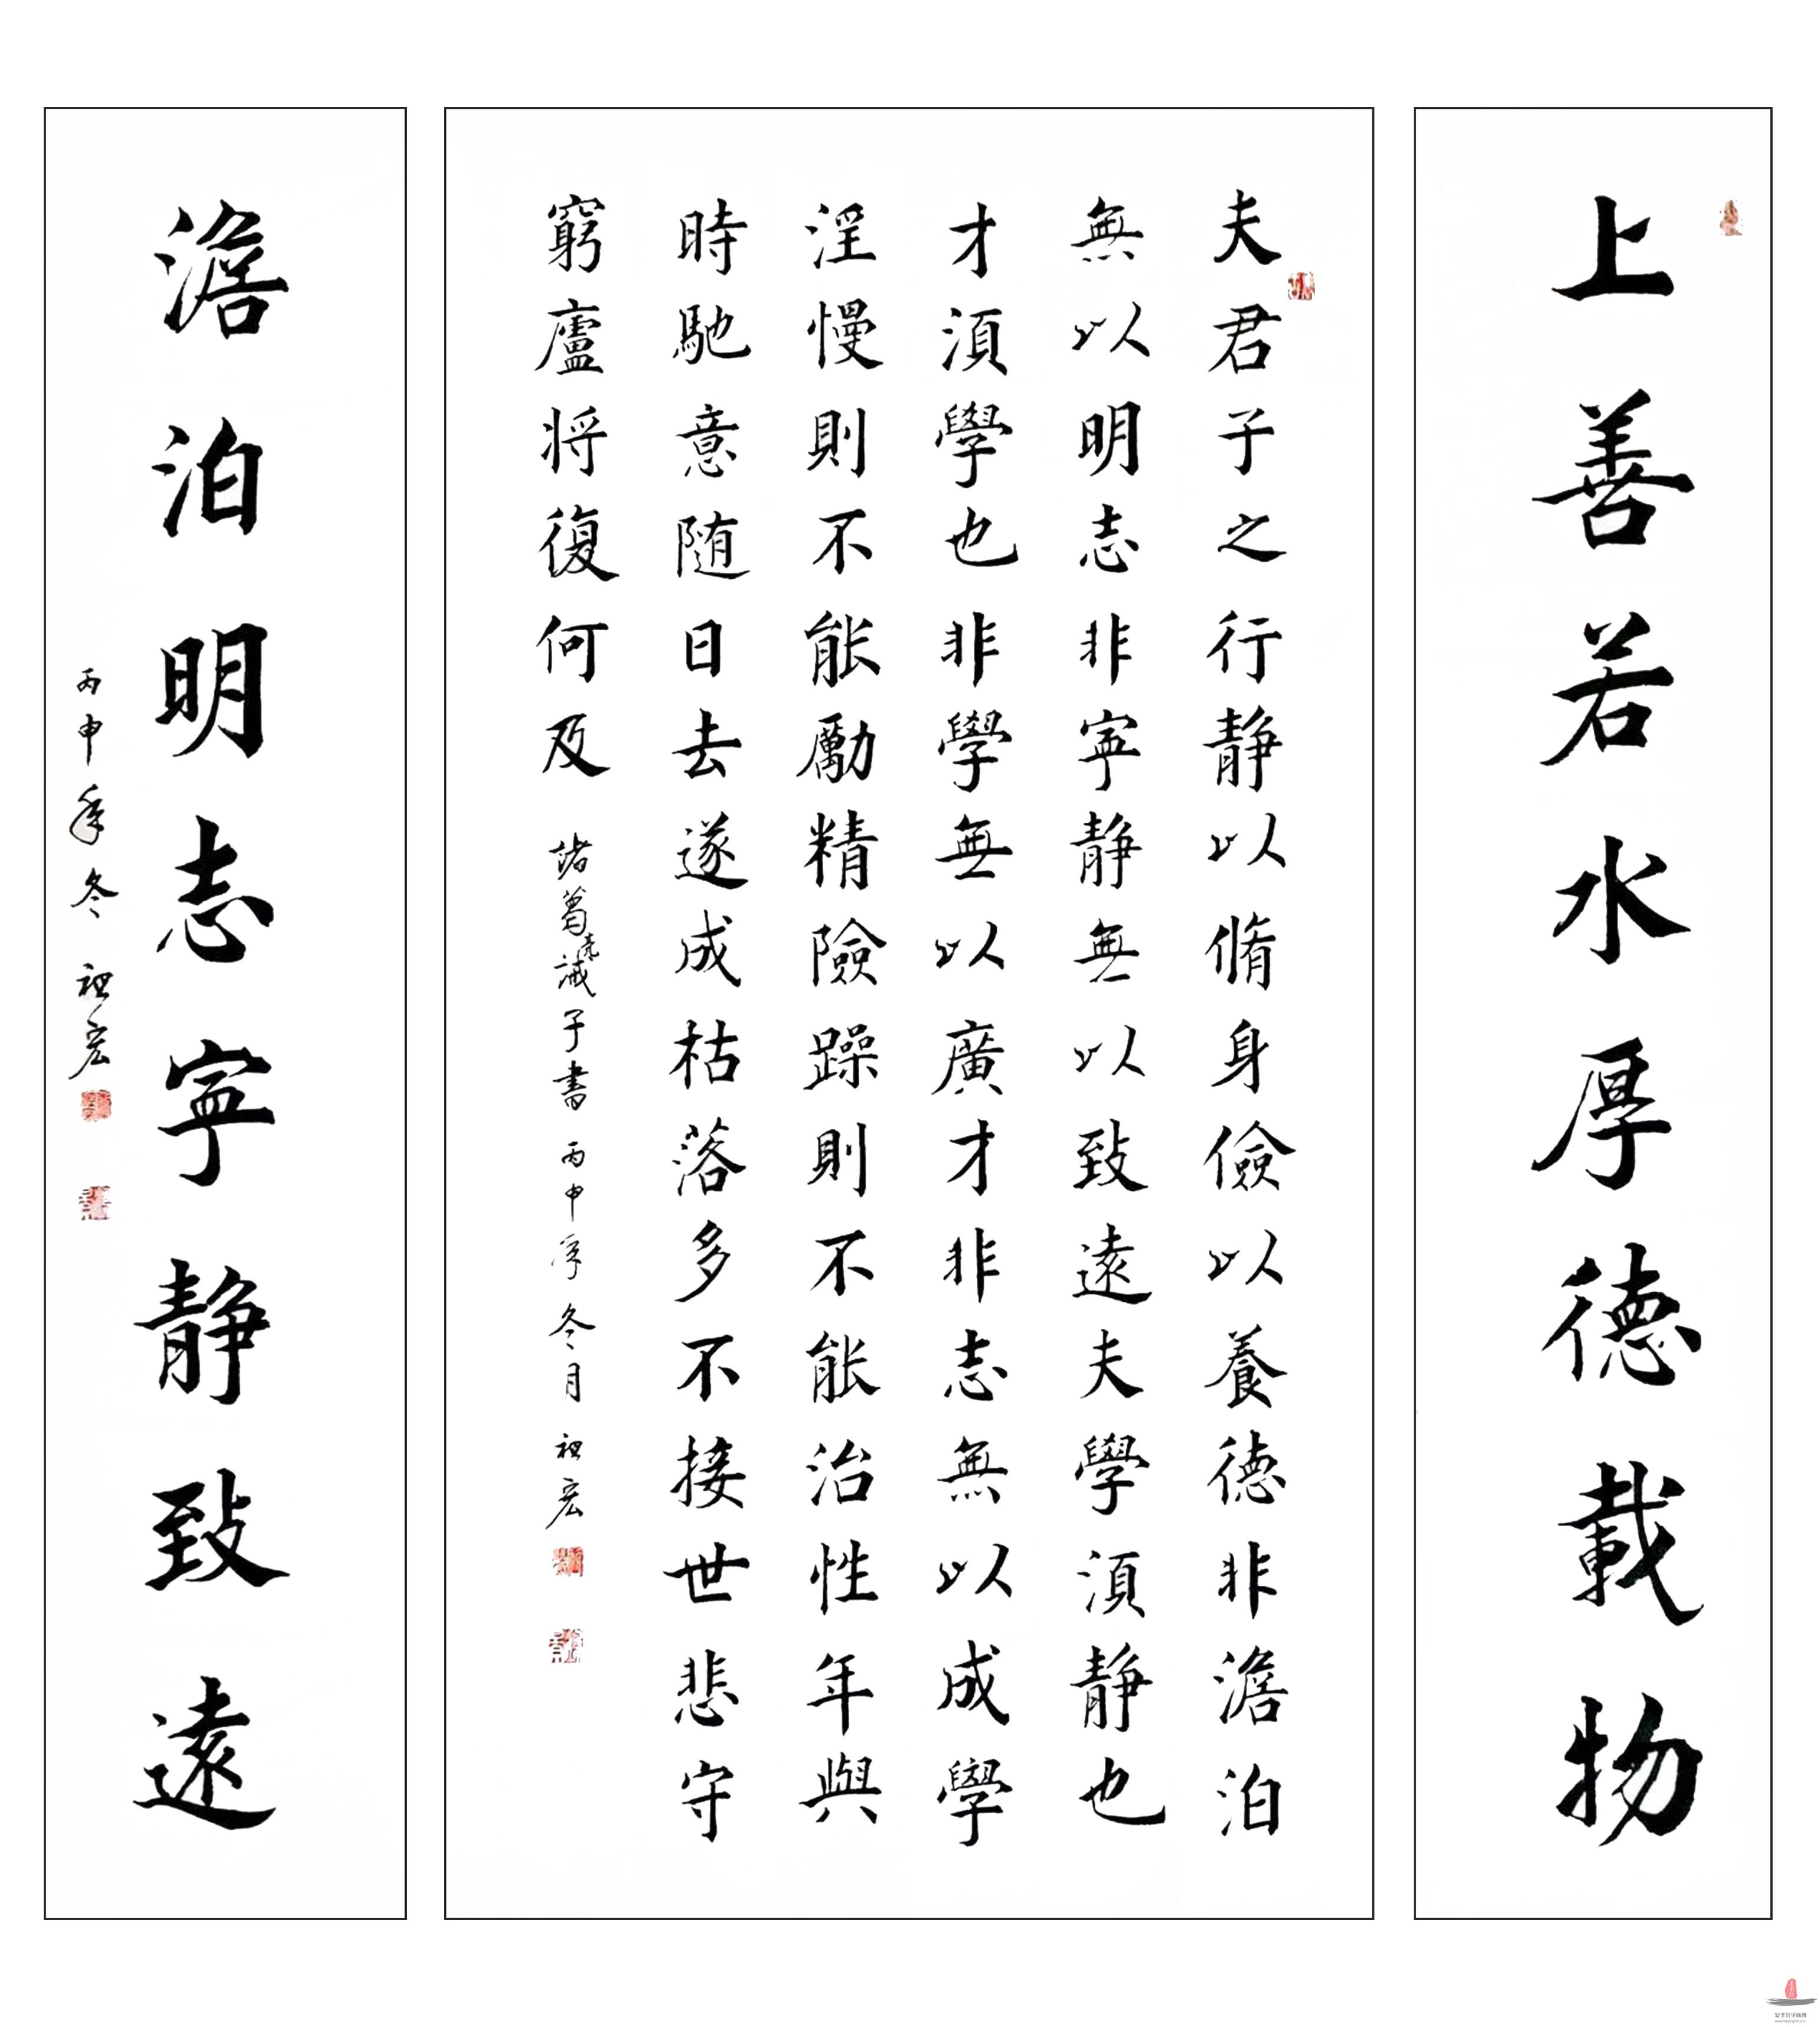 上善若水厚德載物
夫君子之行静以脩身儉以養德非澹泊
無以明志非寧静無以致遠夫學湏静也
才湏學也非學無以廣才非志無以成學
淫慢則不能勵精險躁則不能治性年與
時馳意随日去遂成枯落多不接世悲守
窮廬将復何及
諸葛亮誡子書 丙申年冬月 祖宏
澹泊明志寧静致遠
丙申年冬 祖宏